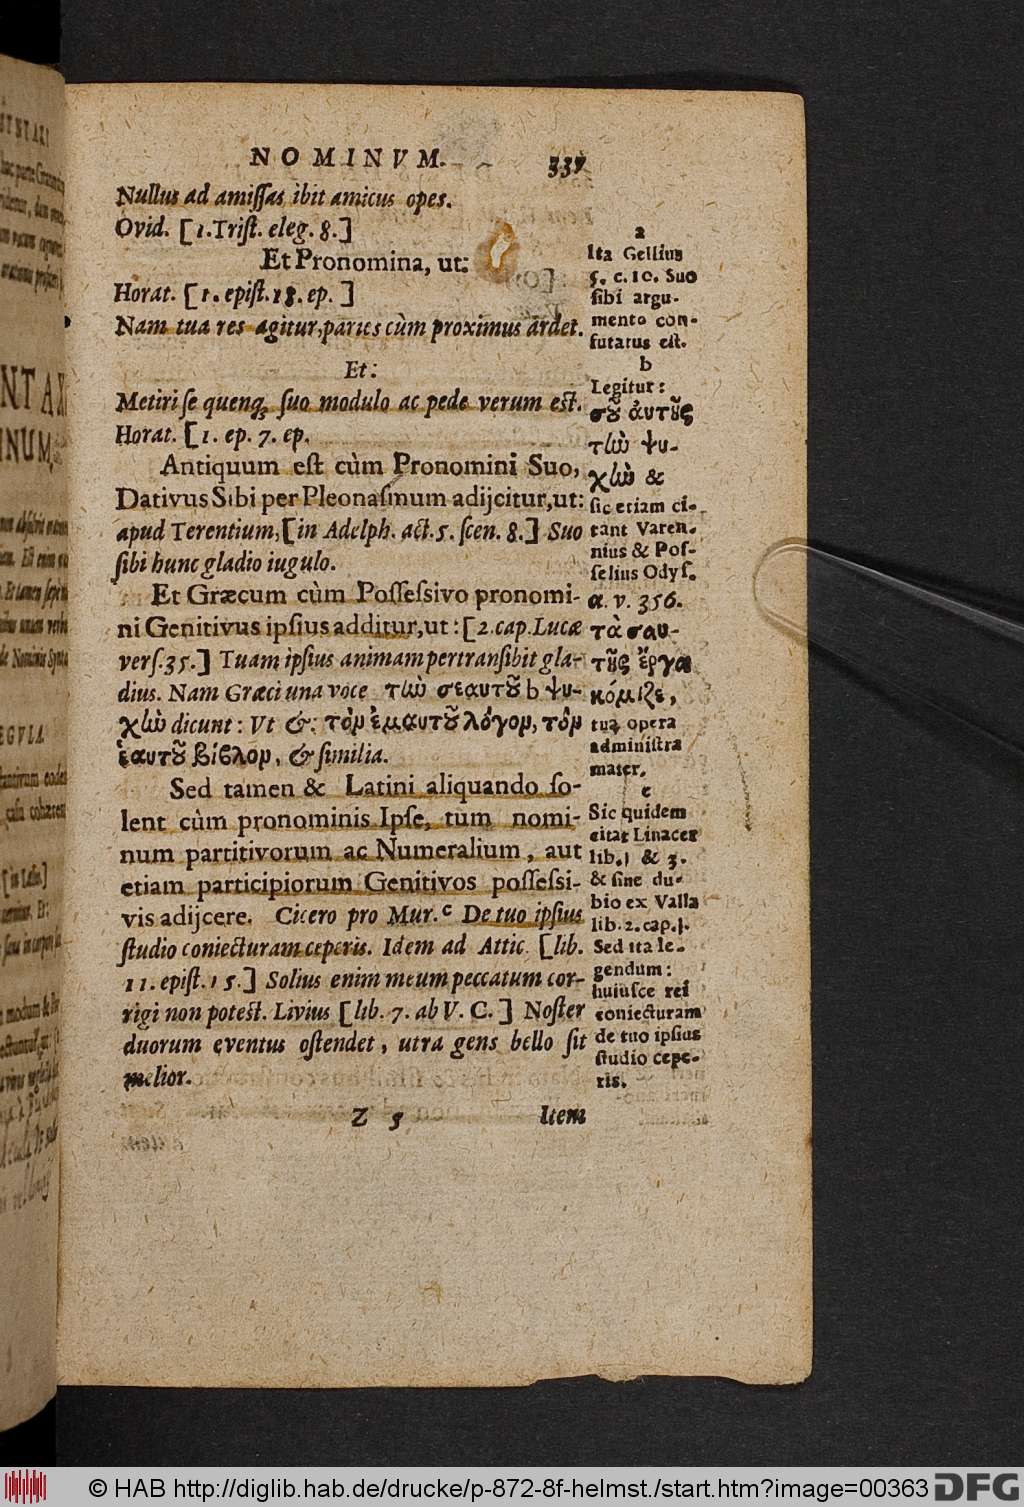 NOMINVM.
Nullus ad amiſſas ibit amicus opes.
Ovid. [1.Triſt. eleg. 8.]
Et Pronomina, ut:
Horat. [1. epiſt. 18. ep. ]
Nam tua res agitur, paries cùm proximus ardet.
Et:
Metiri ſe quenq; ſuo modulo ac pede verum eſt.
Horat. [1. ep. 7. ep.
Antiquum eſt cùm Pronomini Suo,
Dativus Sibi per Pleonaſmum adijcitur, ut:
apud Terentium, [in Adelph. act. 5. ſcen. 8.] Suo
ſibi hunc gladio iugulo.
Et Græcum cùm Poſſeſsivo pronomi-
ni Genitivus ipſius additur, ut: [2. cap. Lucæ
verſ. 35.] Tuam ipſius animam pertranſibit gla-
dius. Nam Græci una voce τὼ σεαυτοῦ b ψυ-
χὼ dicunt: Vt &: τὸν ἐμαυτοῦ λόγον, τὸν
ἑαυτοῦ βίβλον, & ſimilia.
Sed tamen & Latini aliquando ſo-
lent cùm pronominis Ipſe, tum nomi-
num partitivorum ac Numeralium, aut
etiam participiorum Genitivos poſſeſsi-
vis adijcere. Cicero pro Mur. c De tuo ipſius
ſtudio coniecturam ceperis. Idem ad Attic. [lib.
11. epiſt. 15.] Solius enim meum peccatum cor-
rigi non poteſt. Livius [lib. 7. ab V. C.] Noſter
duorum eventus oſtendet, utra gens bello ſit
melior.
Z 5 Item
a
Ita Gellius
5. c. 10. Suo
ſibi argu-
mento con-
futatus eſt.
b
Legitur:
σοῦ αὐτοῦς
τὼ ψυ-
χὼ &
ſic etiam ci-
tant Varen-
nius & Poſ-
ſelius Odyſ.
α. v. 356.
τὰ σαυ-
τῆς ἔργα
κόμιζε,
tua opera
adminiſtra
mater.
c
Sic quidem
citat Linacer
lib. 1 & 3.
& ſine du-
bio ex Valla
lib. 2. cap. 1.
Sed ita le-
gendum:
huiuſce rei
coniecturam
de tuo ipſius
ſtudio cepe-
ris.
© HAB http://diglib.hab.de/drucke/p-872-8f-helmst./start.htm?image=00363
DFG